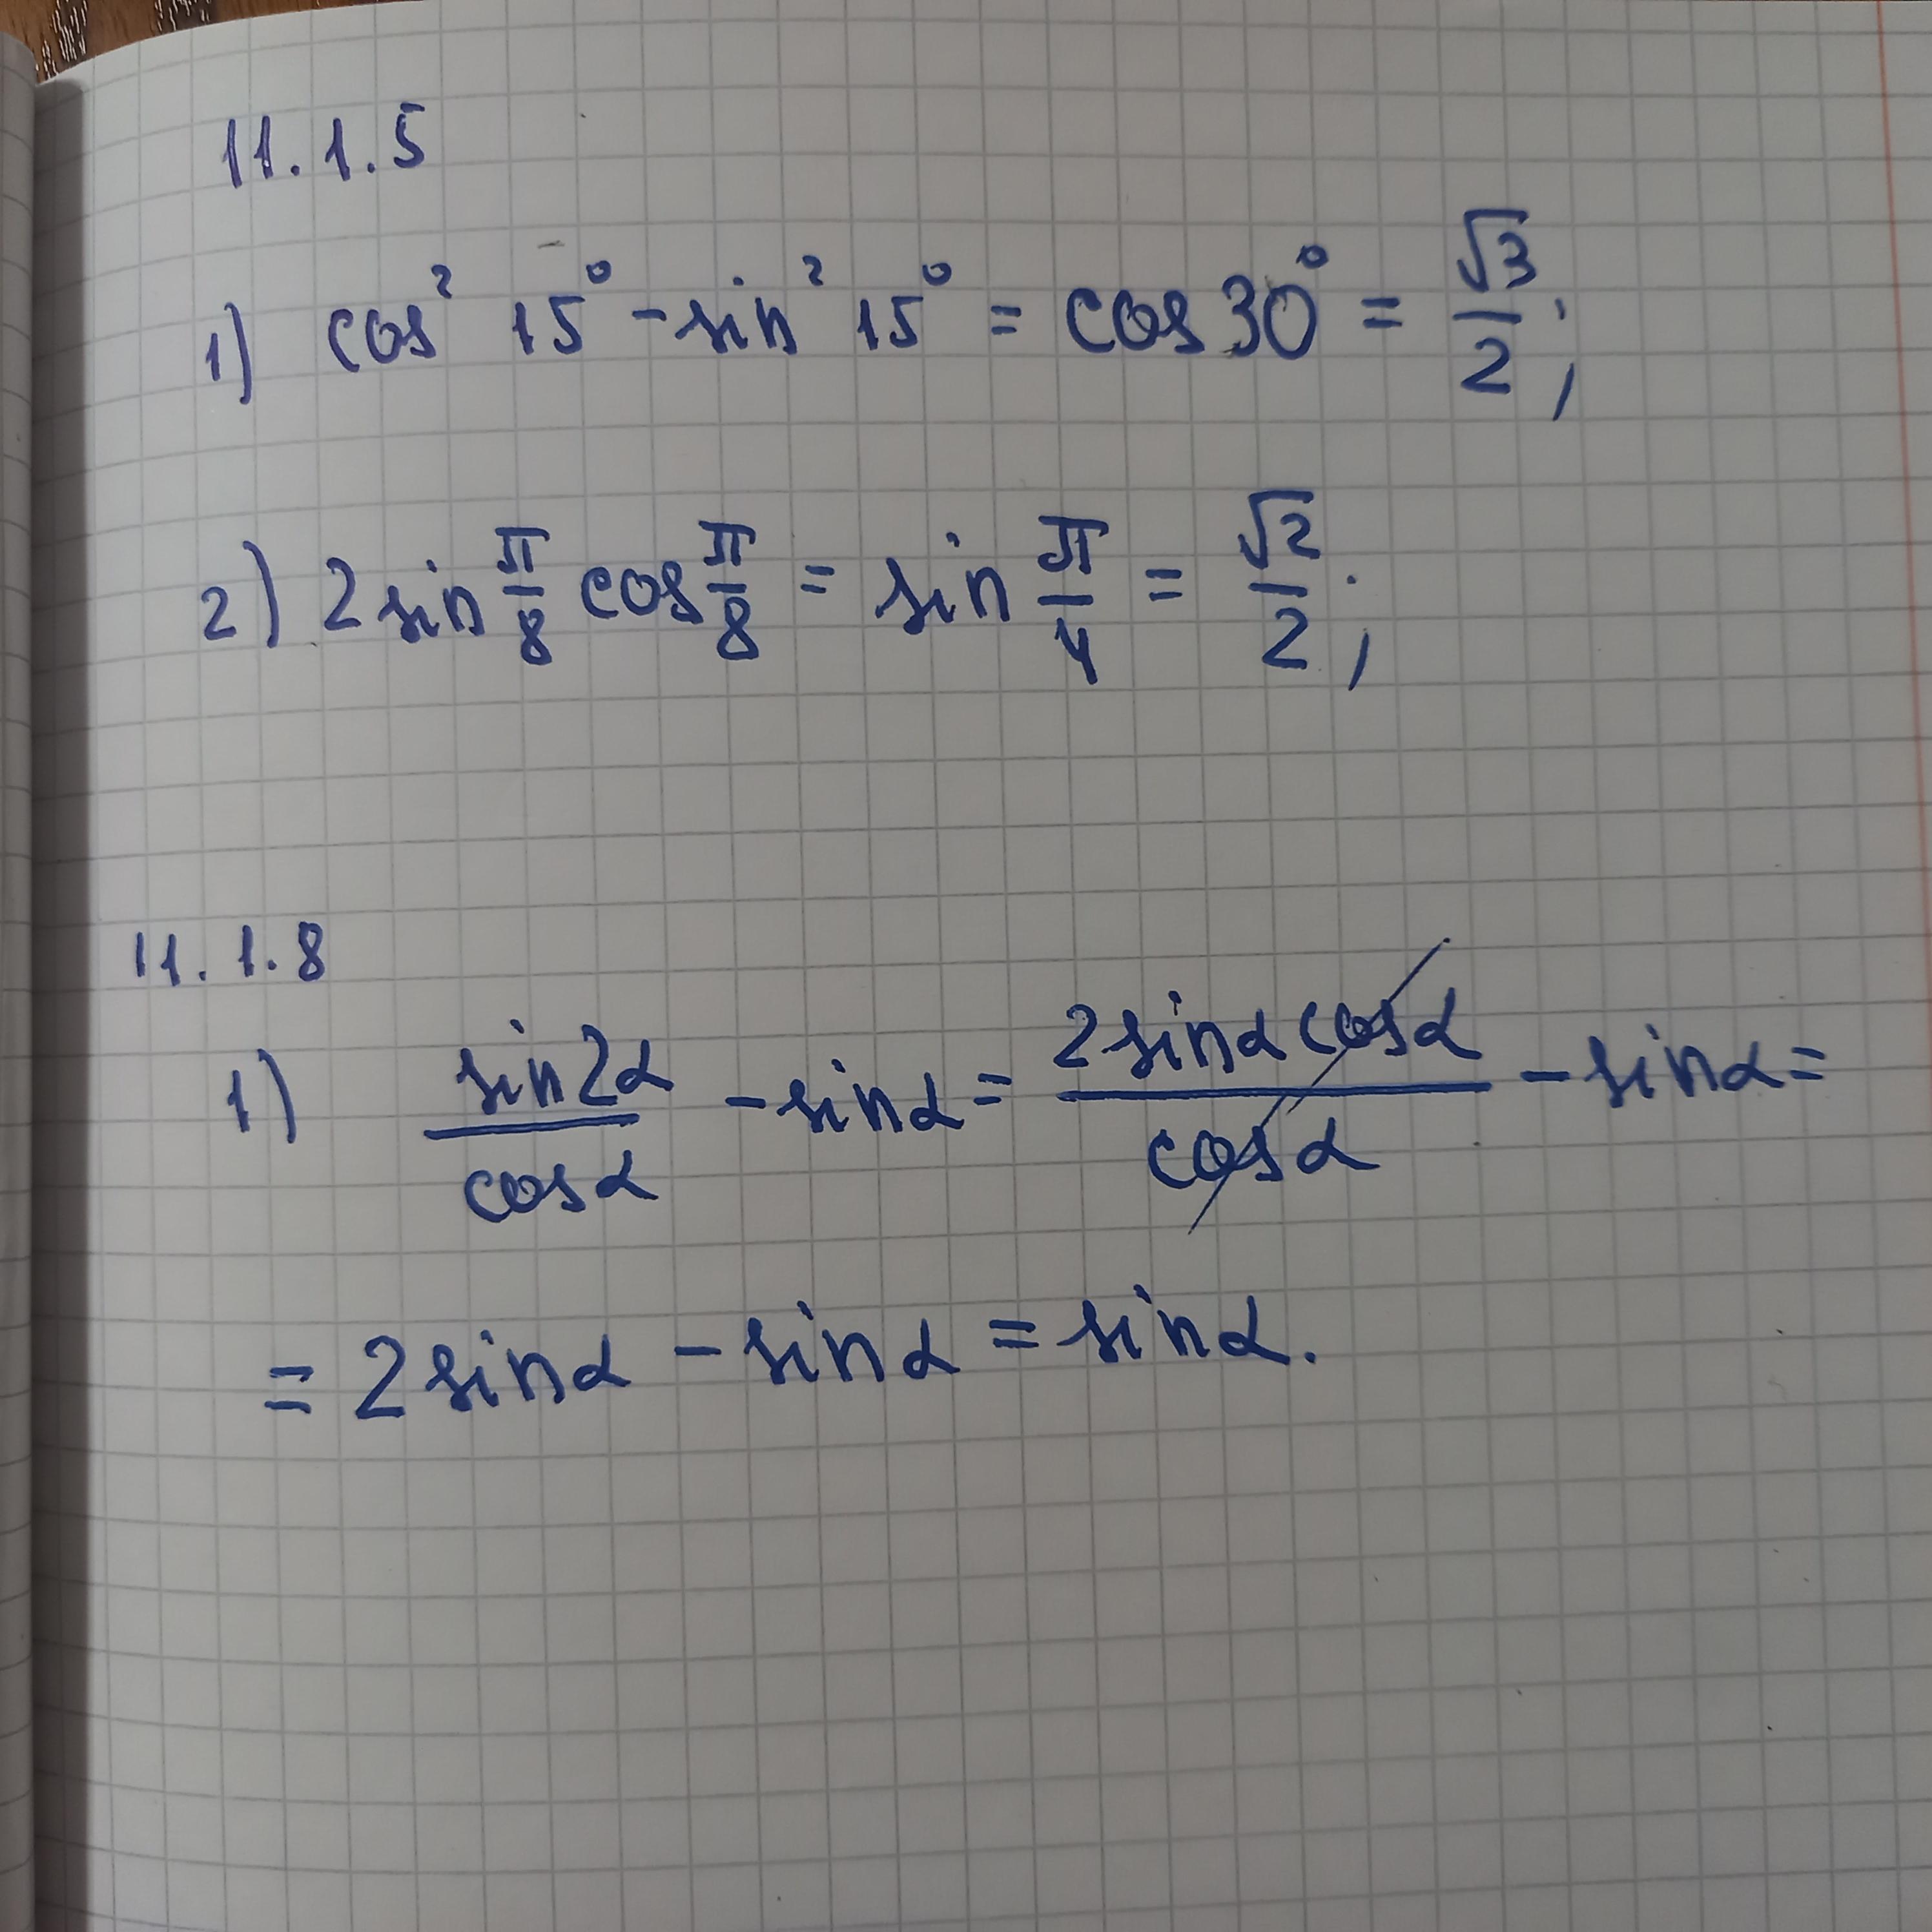 11.1.5
1) cos² 15° - sin² 15° = cos 30° = √3/2;
2) 2 sin π/8 cos π/8 = sin π/4 = √2/2;
11.1.8
1) sin2α/cosα - sinα = 2sinα cosα/cosα - sinα =
= 2 sinα - sinα = sinα.